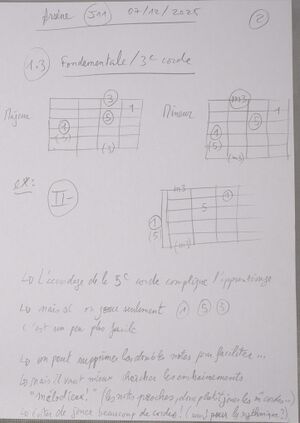 Arsène (J11) 07/12/2025 (2)
(1.3) Fondamentale / 3e corde
Majeur
(3) 1
(5)
(1)
(3) (3)
Mineur
(m3) 1
(5)
(1)
(5) (m3)
ex:
(II-)
m3 (1)
5
(1)
(5 (m3)
↳ L'accordage de la 3e corde complique l'apprentissage
↳ mais si on joue seulement (1) (5) (3)
c'est un peu plus facile
↳ on peut supprimer les doubles notes pour faciliter...
↳ mais il vaut mieux chercher les enchainements
"mélodieux" (les notes proches, donc plutôt jouer les m cordes...)
↳ éviter de jouer beaucoup de cordes! ( pour la rythmique?)